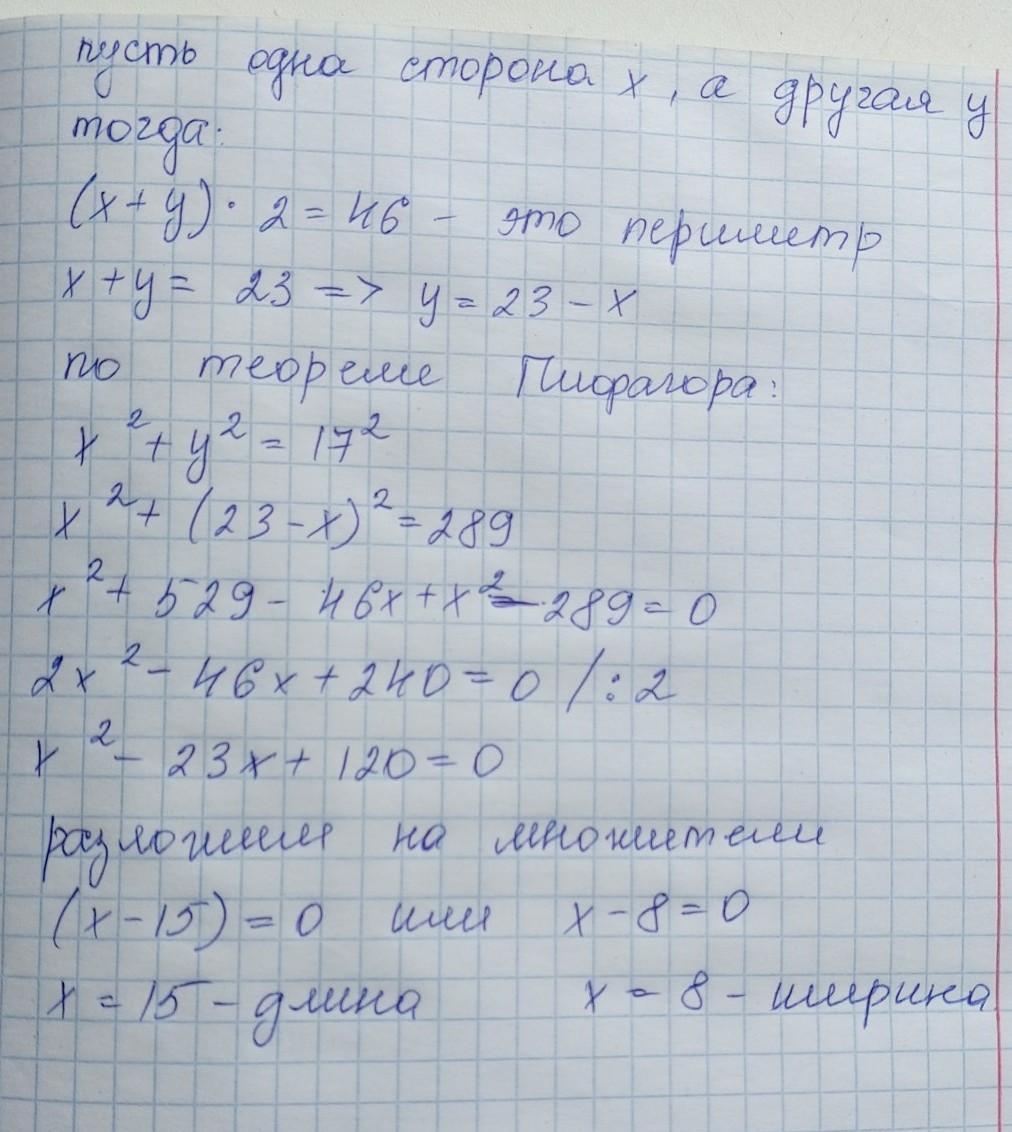 пусть одна сторона x, а другая y
тогда:
(x+y)·2=46 - это периметр
x+y= 23 => y=23-x
по теореме Пифагора:
x²+y²=17²
x²+(23-x)²=289
x²+529-46x+x²-289=0
2x²-46x+240=0 /:2
x²-23x+120=0
разложим на множители
(x-15)=0 или x-8=0
x=15-длина x=8-ширина